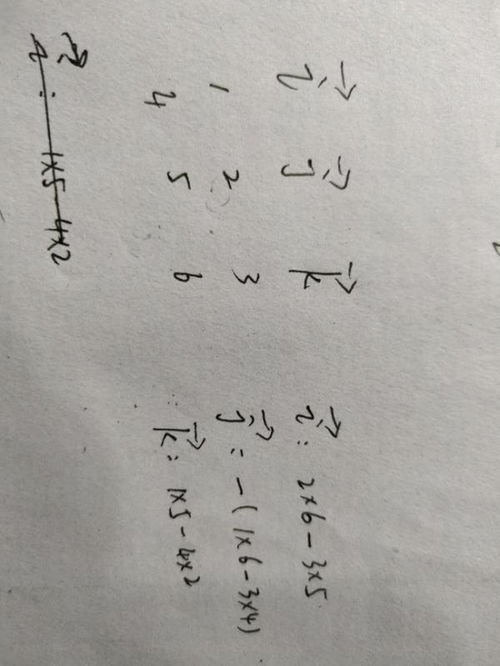 i⃗ j⃗ k⃗
1 2 3
4 5 6
i⃗: 2×6-3×5
j⃗: -(1×6-3×4)
k⃗: 1×5-4×2